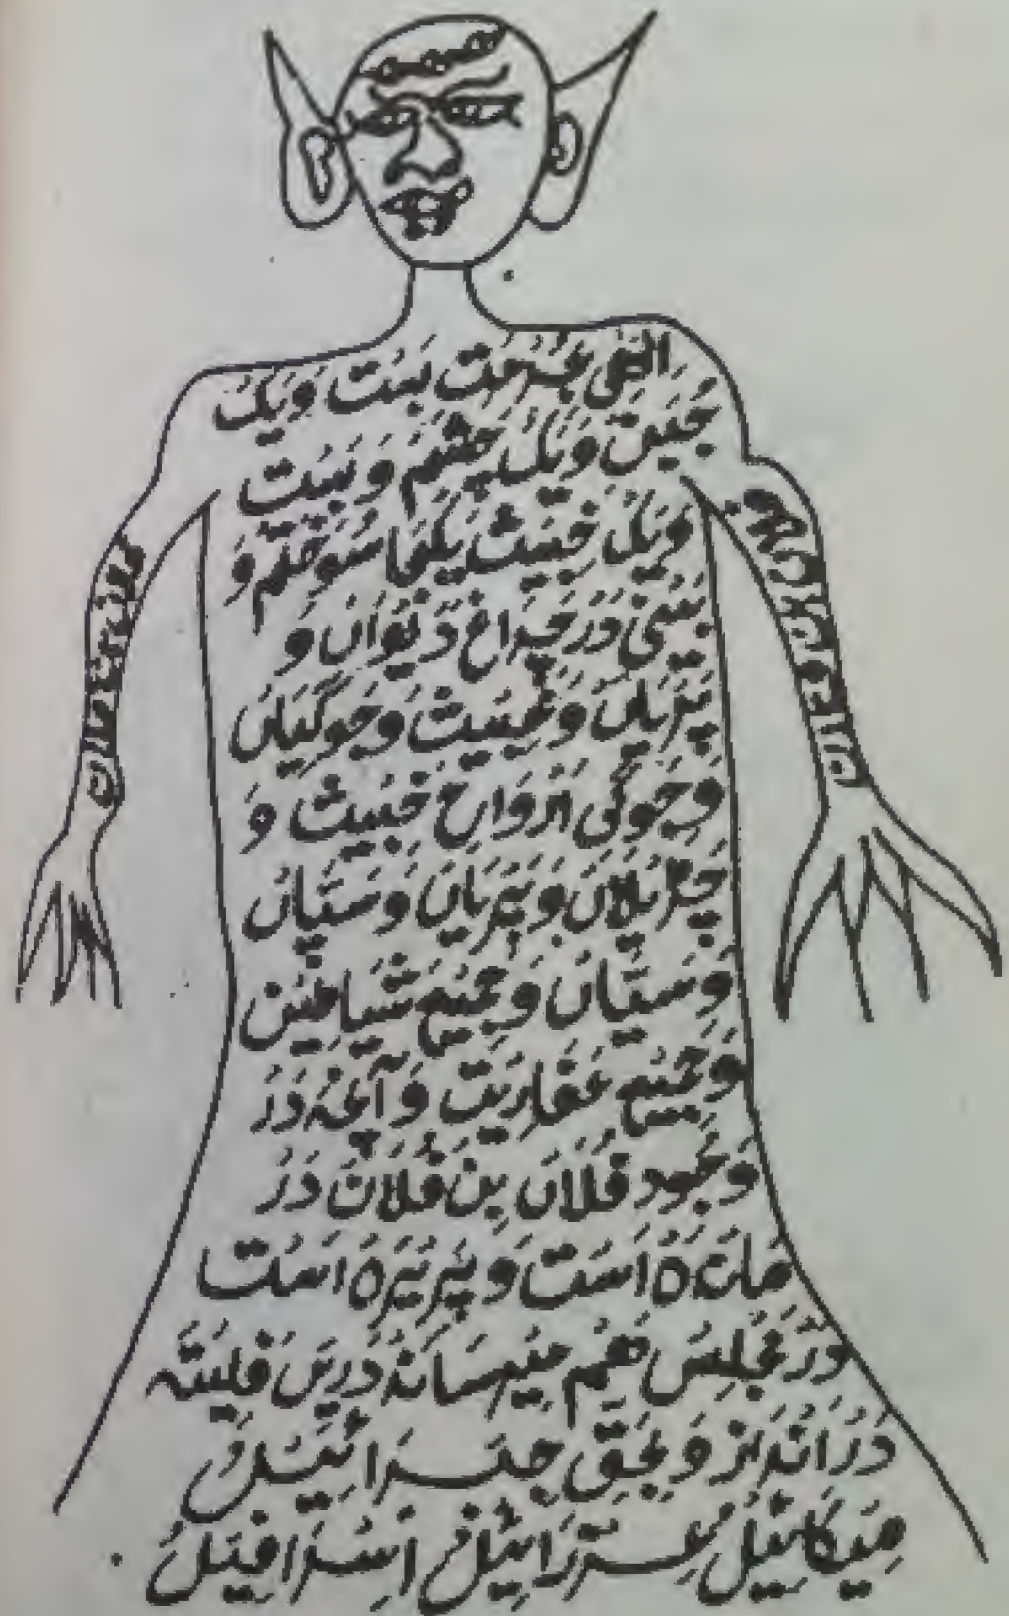 الٰهِی بَحُرْمَت بَسْت وَیَک
جَبَق وَیَک چَشْم وَبَیْت
وَیَک خَبِیْث یَکْجَا سَوخْتَم وَ
بَیْنِی دَرْ چِرَاغ دَیْوَاں وَ
پَرْیَاں وَخَبِیْث وَجَوگِیَاں
وَجَوگِی اَرْوَاح خَبِیْث وَ
چَڑَیْلَاں وَپَرِیَاں وَسَتِیَاں
وَسَتِیَاں وَجَمِیْع شَیَاطِیْن
وَجَمِیْع عَفَارِیْت وَآنچہ دَرْ
وَجُود فُلَاں بِن فُلَاں دَرْ
مَانْدَہ اَسْت وَ اَسْت
وَرْ مَجْلِس ھَم مِیْرَسَانَد دَرِیں فَلِیْتَہ
دَرْاَنْدَاز وَبَحَقِّ جِبْرَائِیْل
مِیْکَائِیْل عِزْرَائِیْل اِسْرَافِیْل